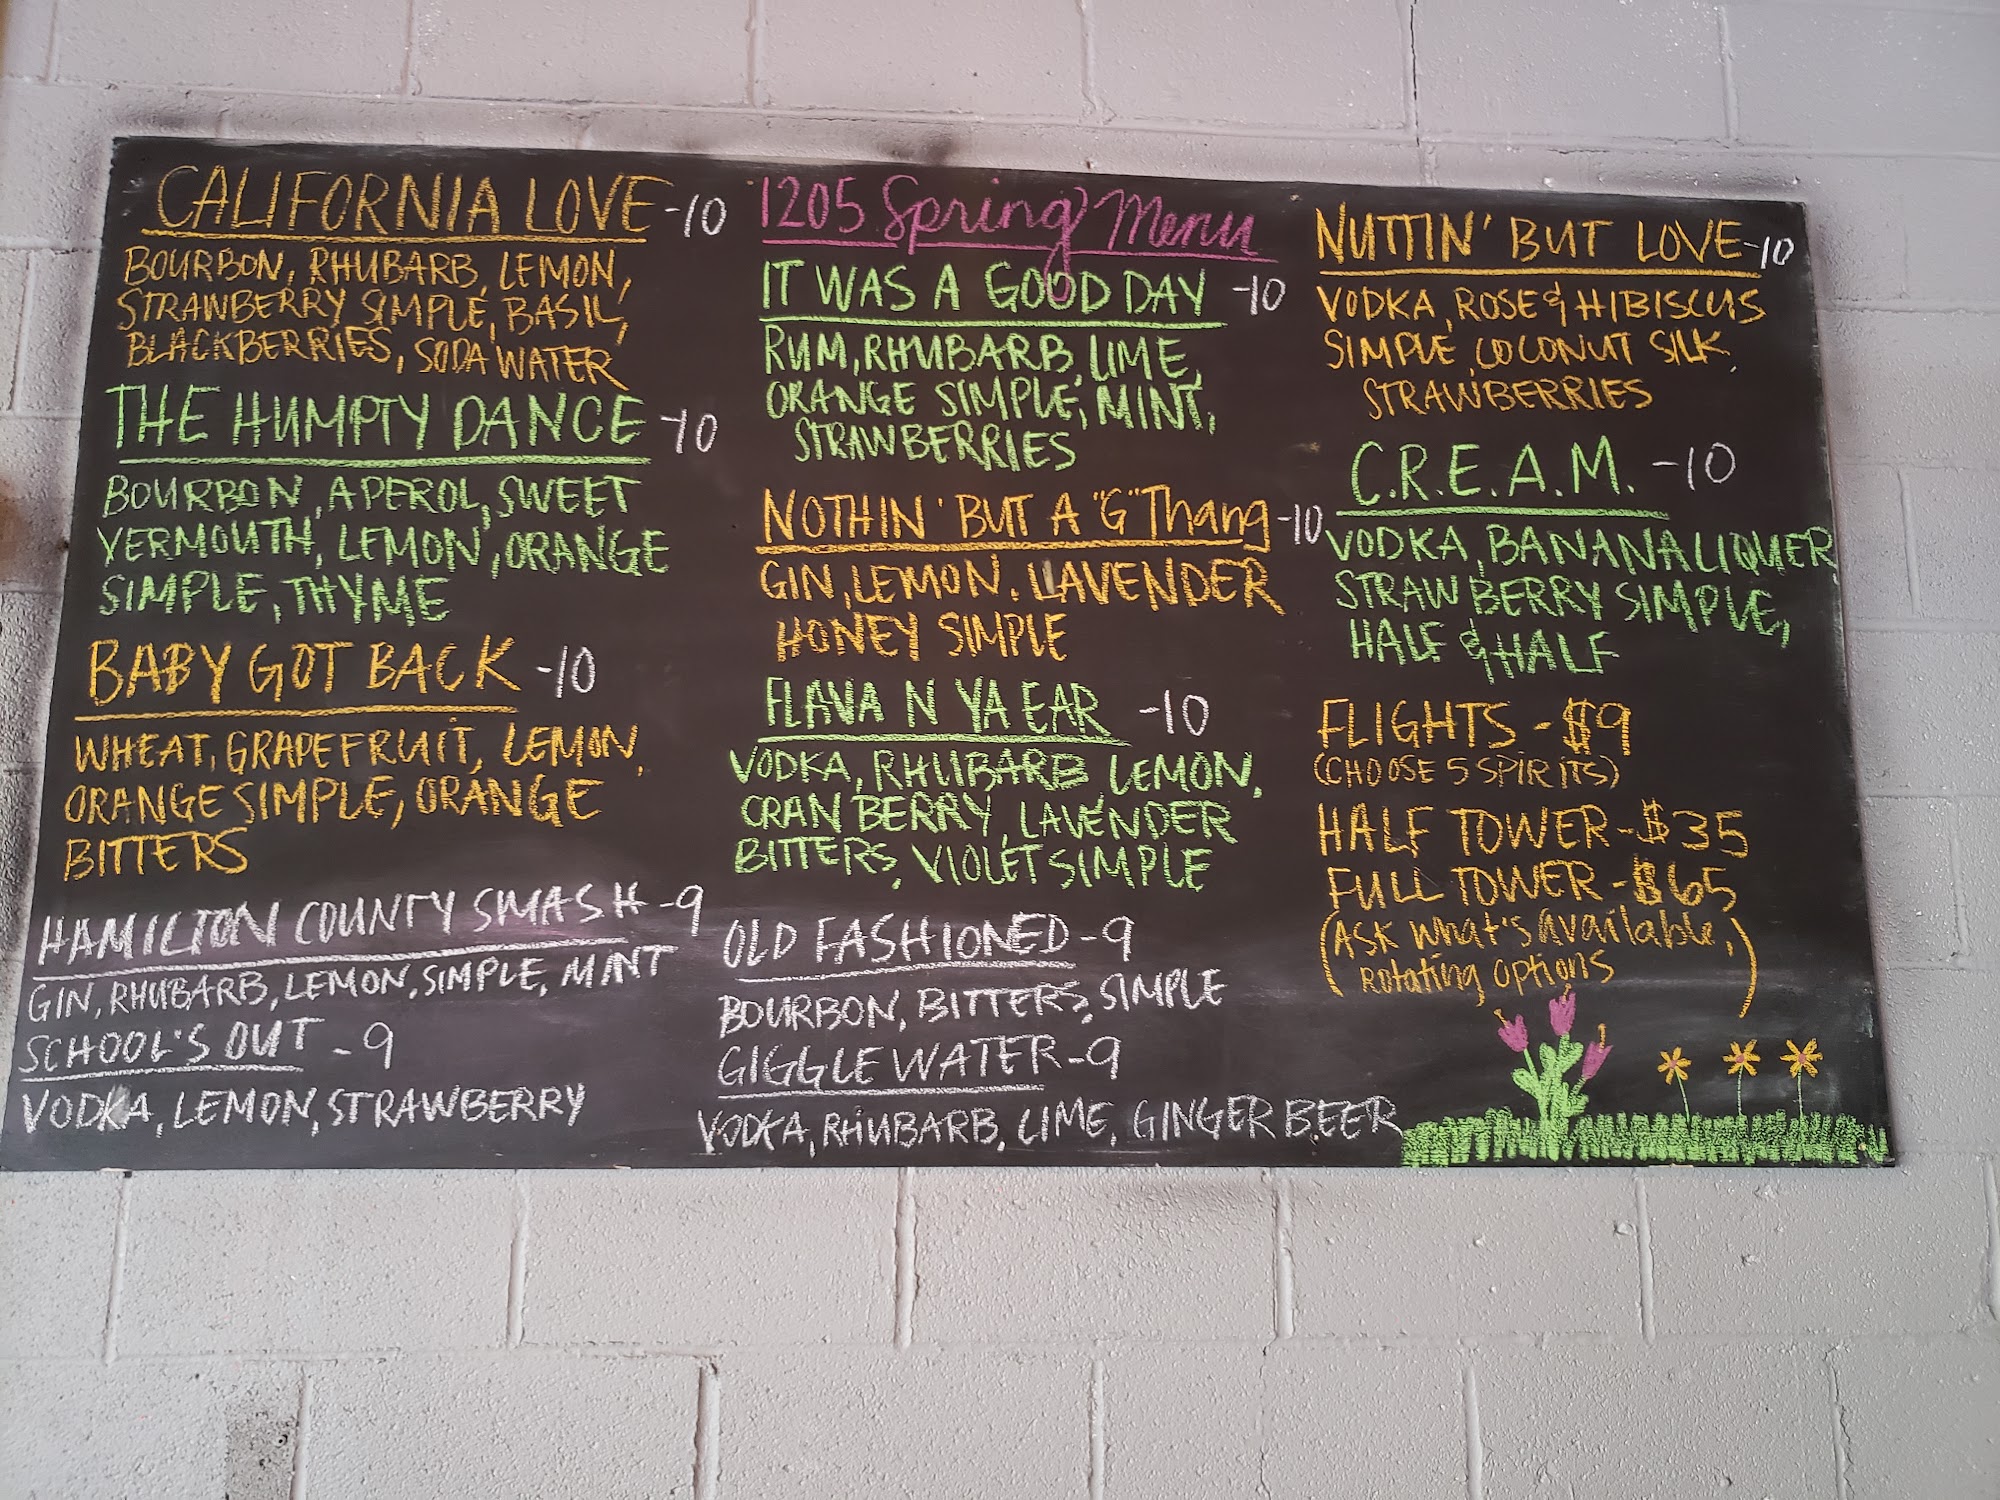 CALIFORNIA LOVE -10
BOURBON, RHUBARB, LEMON,
STRAWBERRY SIMPLE, BASIL,
BLACKBERRIES, SODA WATER
THE HUMPTY DANCE -10
BOURBON, APEROL, SWEET
VERMOUTH, LEMON, ORANGE
SIMPLE, THYME
BABY GOT BACK -10
WHEAT, GRAPEFRUIT, LEMON,
ORANGE SIMPLE, ORANGE
BITTERS
HAMILTON COUNTY SMASH -9
GIN, RHUBARB, LEMON, SIMPLE, MINT
SCHOOL'S OUT -9
VODKA, LEMON, STRAWBERRY
1205 Spring Menu
IT WAS A GOOD DAY -10
RUM, RHUBARB, LIME,
ORANGE SIMPLE, MINT,
STRAWBERRIES
NOTHIN' BUT A "G" Thang -10
GIN, LEMON, LAVENDER
HONEY SIMPLE
FLAVA N YA EAR -10
VODKA, RHUBARB LEMON,
CRANBERRY, LAVENDER
BITTERS, VIOLET SIMPLE
OLD FASHIONED -9
BOURBON, BITTERS, SIMPLE
GIGGLE WATER -9
VODKA, RHUBARB, LIME, GINGER BEER
NUTTIN' BUT LOVE -10
VODKA, ROSE & HIBISCUS
SIMPLE, COCONUT SILK,
STRAWBERRIES
C.R.E.A.M. -10
VODKA, BANANA LIQUER
STRAWBERRY SIMPLE,
HALF & HALF
FLIGHTS - $9
(CHOOSE 5 SPIRITS)
HALF TOWER - $35
FULL TOWER - $65
(ASK what's available,
Rotating options)